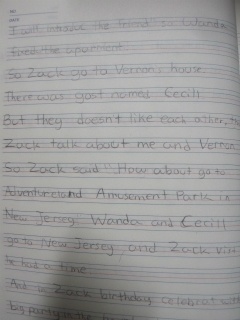 I will introduce the friend is Wanda
lived the apartment.
So Zack go to Vernon's house.
There was gost named Cecill.
But they doesn't like each other, 
Zack talk about me and Vernon.
So Zack said "How about go to
Adventureland Amusement Park in
New Jersey. Wanda and Cecill
go to New Jersey, and Zack
he had a time
And in Zack birthday celebrat
big party is the